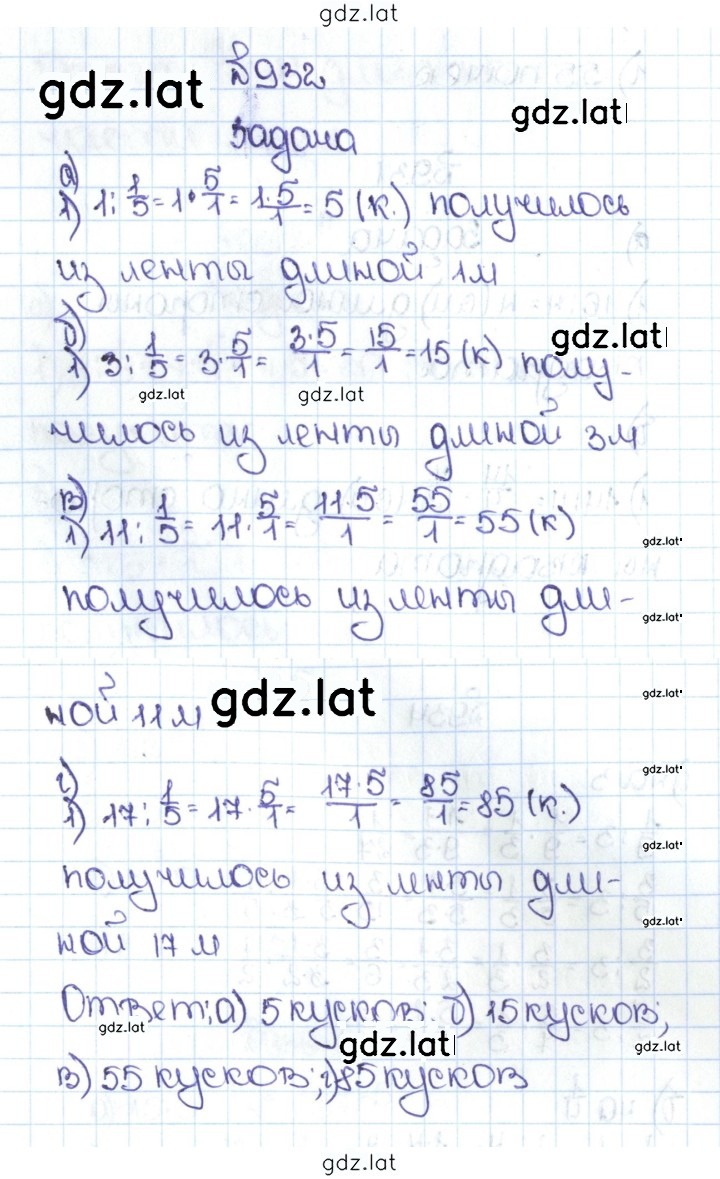 gdz.lat
№932
gdz.lat
gdz.lat
Задача
а)
1) 1 : 1/5 = 1 · 5/1 = 1·5/1 = 5 (к.) получилось
из ленты длиной 1м
б)
gdz.lat
1) 3 : 1/5 = 3 · 5/1 = 3·5/1 = 15/1 = 15 (к) полу-
gdz.lat
gdz.lat
чилось из ленты длиной 3м
в)
1) 11 : 1/5 = 11 · 5/1 = 11·5/1 = 55/1 = 55 (к)
gdz.lat
получилось из ленты дли-
gdz.lat
gdz.lat
ной 11 м
gdz.lat
г)
gdz.lat
1) 17 : 1/5 = 17 · 5/1 = 17·5/1 = 85/1 = 85 (к.)
gdz.lat
получилось из ленты дли-
gdz.lat
ной 17 м
Ответ: а) 5 кусков; б) 15 кусков;
gdz.lat
gdz.lat
gdz.lat
в) 55 кусков; г) 85 кусков
gdz.lat